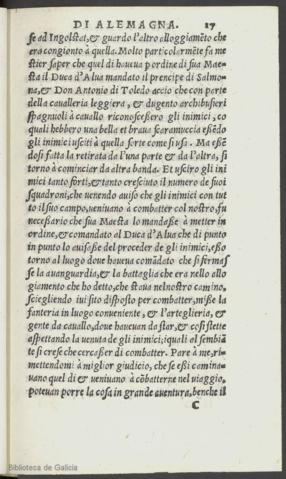 DI ALEMAGNA. 17
se ad Ingolstat, & guardo l'altro alloggiamẽto che
era congionto à quella. Molto particolarmẽte fa me
stier saper che quel di haueua p ordine di sua Mae-
sta il Duca d'Alua mandato il prencipe di Salmo-
na, & Don Antonio di Toledo accio che con parte
della caualleria leggiera, & dugento archibusieri
spagnuoli à cauallo riconoscessero gli inimici, co
quali hebbero una bella et braua scaramuccia essẽdo
gli inimici usciti à quella forte come si usa. Ma essẽ
dosi fatta la retirata da l'una parte & da l'altra, si
torno à cominciar da altra banda. Et usciro gli ini
mici tanto forti, & tanto cresciuto il numero de suoi
squadroni, che uenendo auiso che gli inimici con tut
to il suo campo, ueniuano à combatter col nostro, fu
necessario che sua Maesta lo mandasse à metter in
ordine, & comandato al Duca d'Alua che di punto
in punto lo auisasse del proceder de gli inimici, esso
torno al luogo doue haueua comãdato che si fermas
se la auanguardia, & la battaglia che era nello allo
giamento che ho detto, che staua nel nostro camino,
sciegliendo iui sito disposto per combatter, misse la
fanteria in luogo conueniente, & l'arteglieria, &
gente da cauallo, doue haueuan da star, & cosi stette
aspettando la uenuta de gli inimici, iquali al sembiã
te si crese che cercasser di combatter. Pare à me, ri-
mettendomi à miglior giudicio, che se essi camina-
uano quel di & ueniuano à cõbatterne nel uiaggio,
poteuan porre la cosa in grande auentura, benche il
C
Biblioteca de Galicia